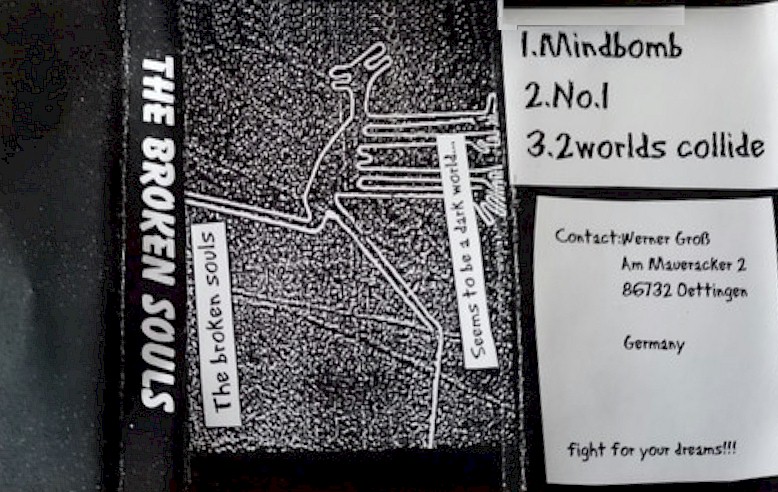 THE BROKEN SOULS
The broken souls
Seems to be a dark world...
1.Mindbomb
2.No.1
3.2worlds collide
Contact:Werner Groß
Am Maueracker 2
86732 Oettingen
Germany
fight for your dreams!!!